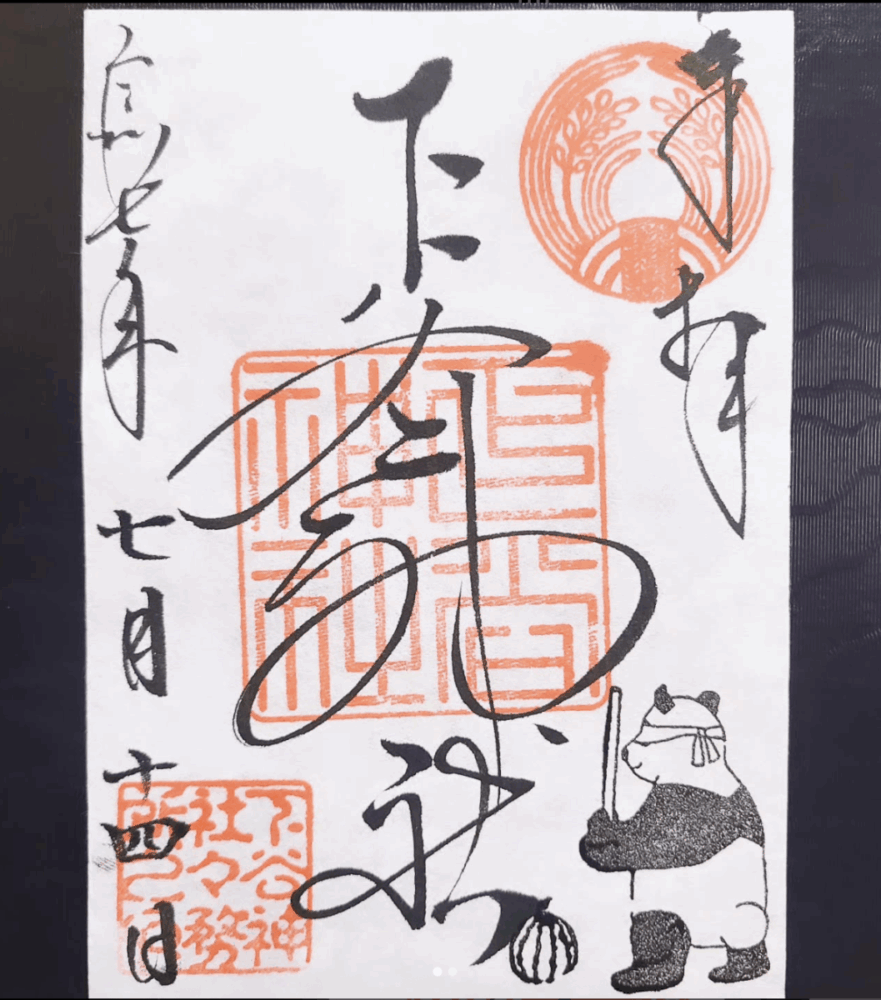 奉拝
下谷神社
令和七年七月十四日
下谷神
社々務
所之印